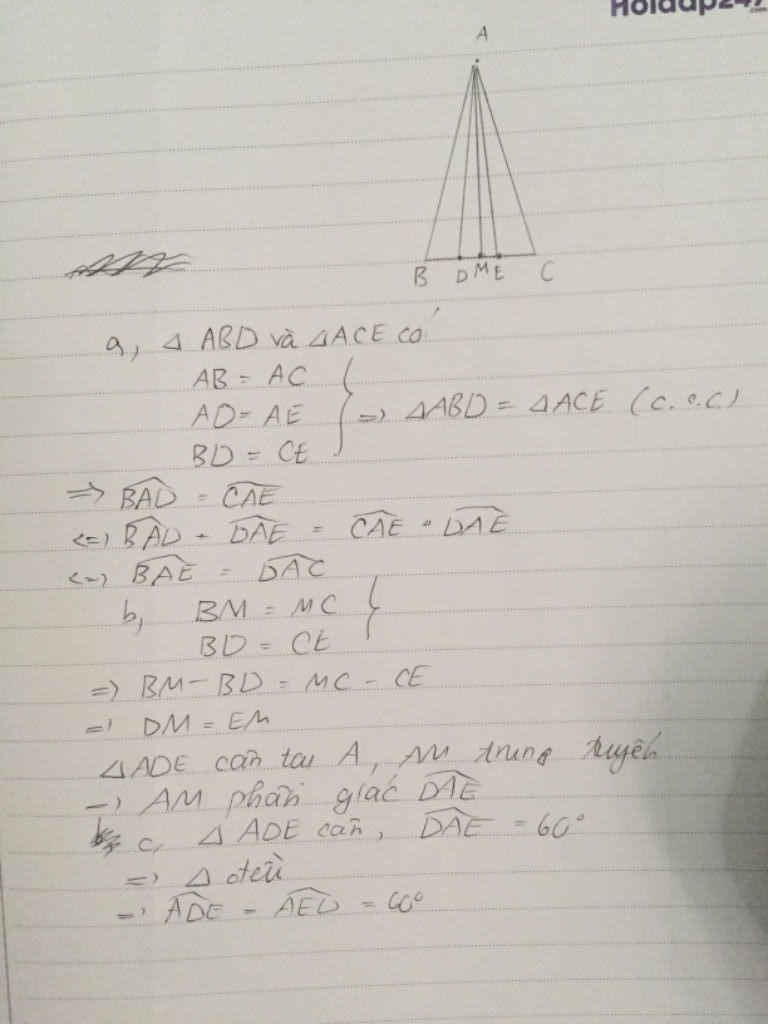 Hoidap247
.com
A
B D M E C
a, Δ ABD và ΔACE có
AB = AC
AD = AE } => ΔABD = ΔACE (c.c.c)
BD = CE
=> BAD = CAE
<=> BAD + DAE = CAE + DAE
<=> BAE = DAC
b, BM = MC }
BD = CE
=> BM - BD = MC - CE
=> DM = EM
ΔADE cân tại A, AM trung tuyến
=> AM phân giác DAE
c, Δ ADE cân, DAE = 60°
=> Δ đều
=> ADE = AED = 60°